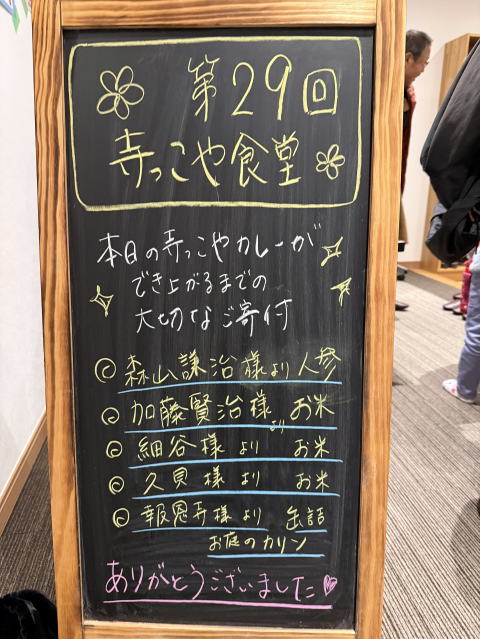 第29回
寺っこや食堂
本日の寺っこやカレーが
でき上がるまでの
大切なご寄付
森山謙治様より人参
加藤賢治様より お米
細谷様より お米
久貝様より お米
報恩寺様より 缶詰
お庭のカリン
ありがとうございました♡